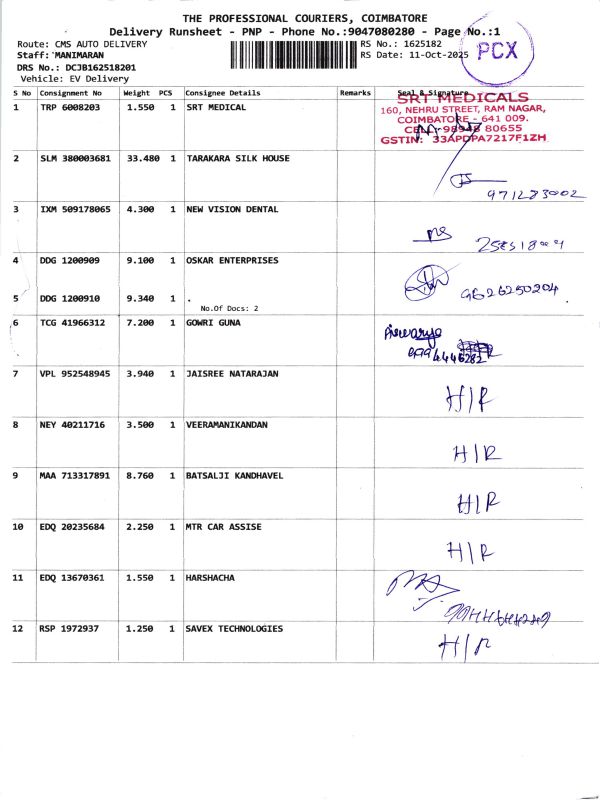 THE PROFESSIONAL COURIERS, COIMBATORE
Delivery Runsheet - PNP - Phone No.:9047080280 - Page No.:1
Route: CMS AUTO DELIVERY
RS No.: 1625182
PCX
Staff: MANIMARAN
RS Date: 11-Oct-2025
DRS No.: DCJB162518201
Vehicle: EV Delivery
S No Consignment No Weight PCS Consignee Details Remarks Seal & Signature
1 TRP 6008203 1.550 1 SRT MEDICAL
SRT MEDICALS
160, NEHRU STREET, RAM NAGAR,
COIMBATORE - 641 009.
CELL: 98948 80655
GSTIN: 33APDPA7217F1ZH
2 SLM 380003681 33.480 1 TARAKARA SILK HOUSE
971283002
3 IXM 509178065 4.300 1 NEW VISION DENTAL
4 DDG 1200909 9.100 1 OSKAR ENTERPRISES
9626250204
5 DDG 1200910 9.340 1 .
No.Of Docs: 2
6 TCG 41966312 7.200 1 GOWRI GUNA
Aiswarya
7 VPL 952548945 3.940 1 JAISREE NATARAJAN
H/R
8 NEY 40211716 3.500 1 VEERAMANIKANDAN
H/R
9 MAA 713317891 8.760 1 BATSALJI KANDHAVEL
H/R
10 EDQ 20235684 2.250 1 MTR CAR ASSISE
H/R
11 EDQ 13670361 1.550 1 HARSHACHA
12 RSP 1972937 1.250 1 SAVEX TECHNOLOGIES
H/R